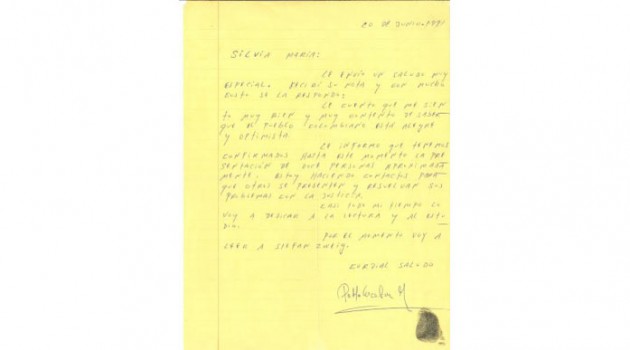 20 de Junio-1991
SILVIA MARIA:
LE ENVIO UN SALUDO MUY
ESPECIAL. RECIBI SU NOTA Y CON MUCHO
GUSTO SE LA RESPONDO.
LE CUENTO QUE ME SIEN
TO MUY BIEN Y MUY CONTENTO DE SABER
QUE EL PUEBLO COLOMBIANO ESTÁ ALEGRE
Y OPTIMISTA.
LE INFORMO QUE TENEMOS
CONFIRMADOS HASTA ESTE MOMENTO LA PRE
SENTACION DE PERSONAS APROXIMADA
MENTE. ESTOY HACIENDO CONTACTOS PARA
QUE OTROS SE PRESENTEN Y RESUELVAN SUS
PROBLEMAS CON LA JUSTICIA.
CASI TODO MI TIEMPO LO
VOY A DEDICAR A LA LECTURA Y AL ESTU
DIO.
POR EL MOMENTO VOY A
LEER A STEFAN ZWEIG.
CORDIAL SALUDO
Pablo Escobar